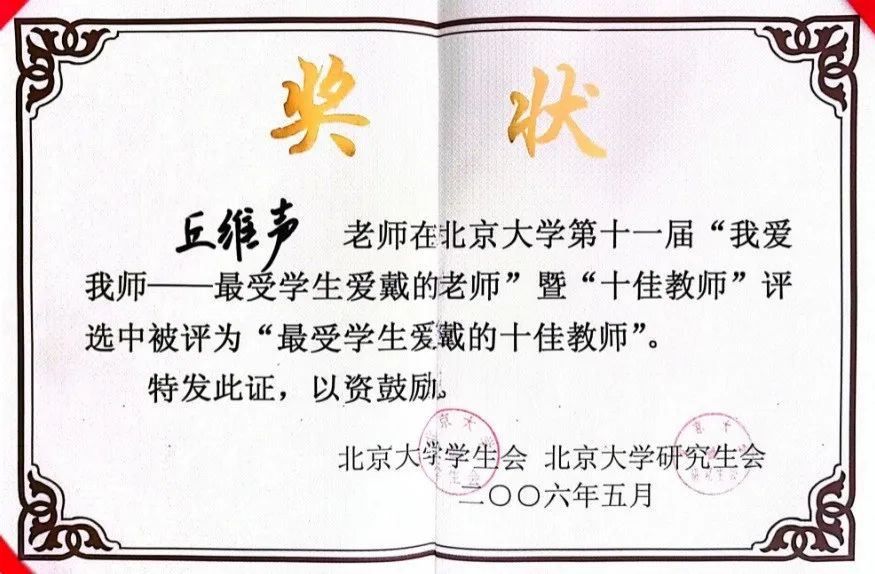 奖状
丘维声 老师在北京大学第十一届“我爱
我师——最受学生爱戴的老师”暨“十佳教师”评
选中被评为“最受学生爱戴的十佳教师”。
特发此证，以资鼓励。
北京大学学生会 北京大学研究生会
二〇〇六年五月